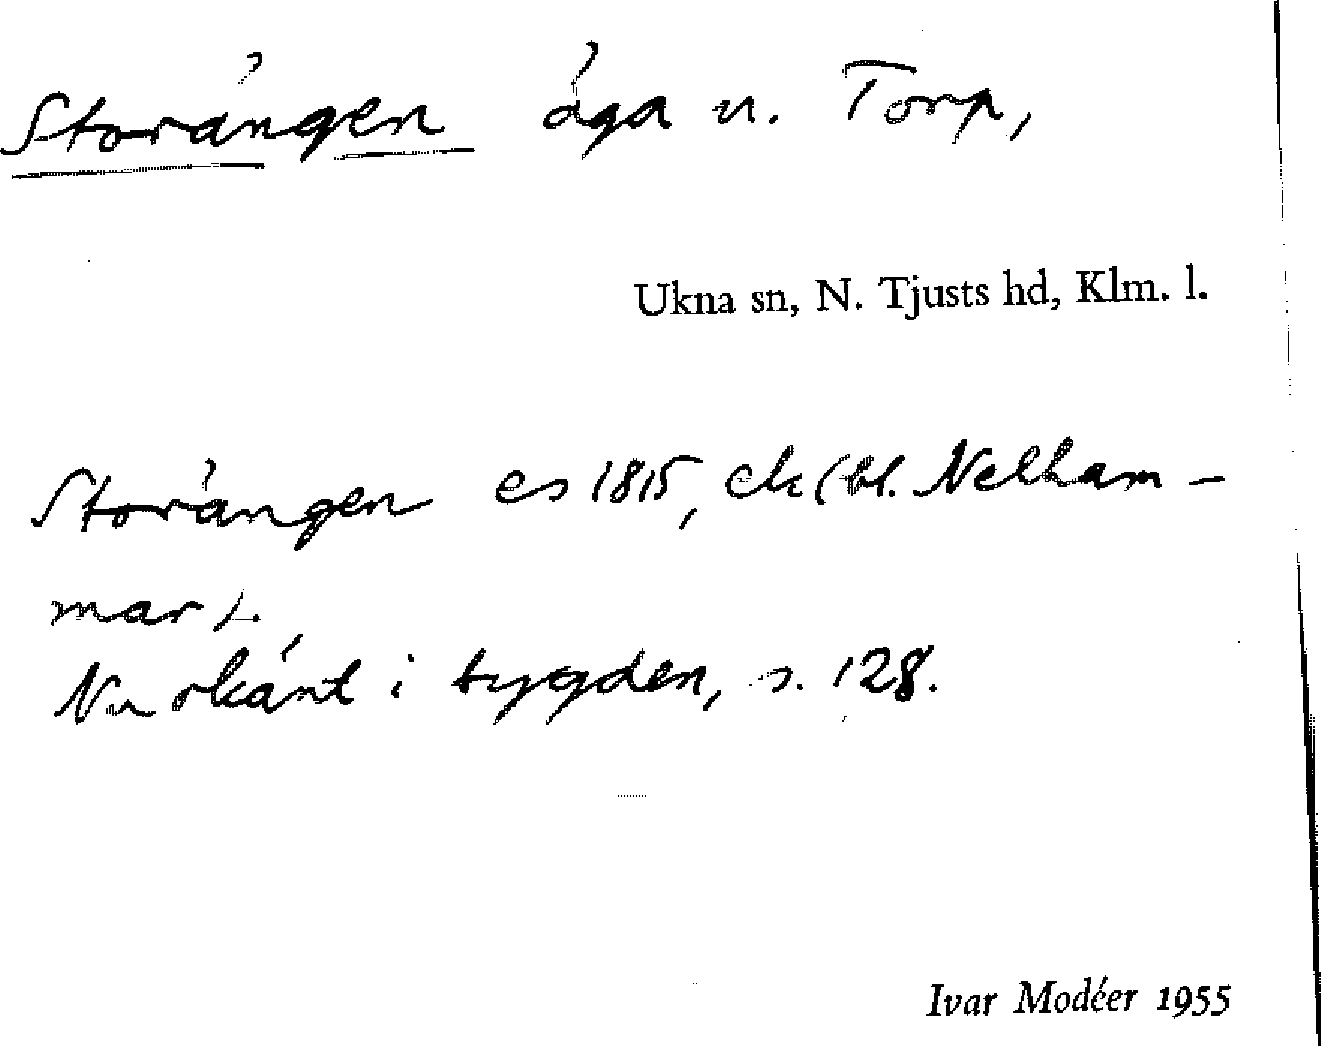 Storängen äga u. Torp,
Ukna sn, N. Tjusts hd, Klm. l.
Storängen es 1815, ek (bl. Nelham-
mar).
Nu okänt i bygden, s. 128.
Ivar Modéer 1955